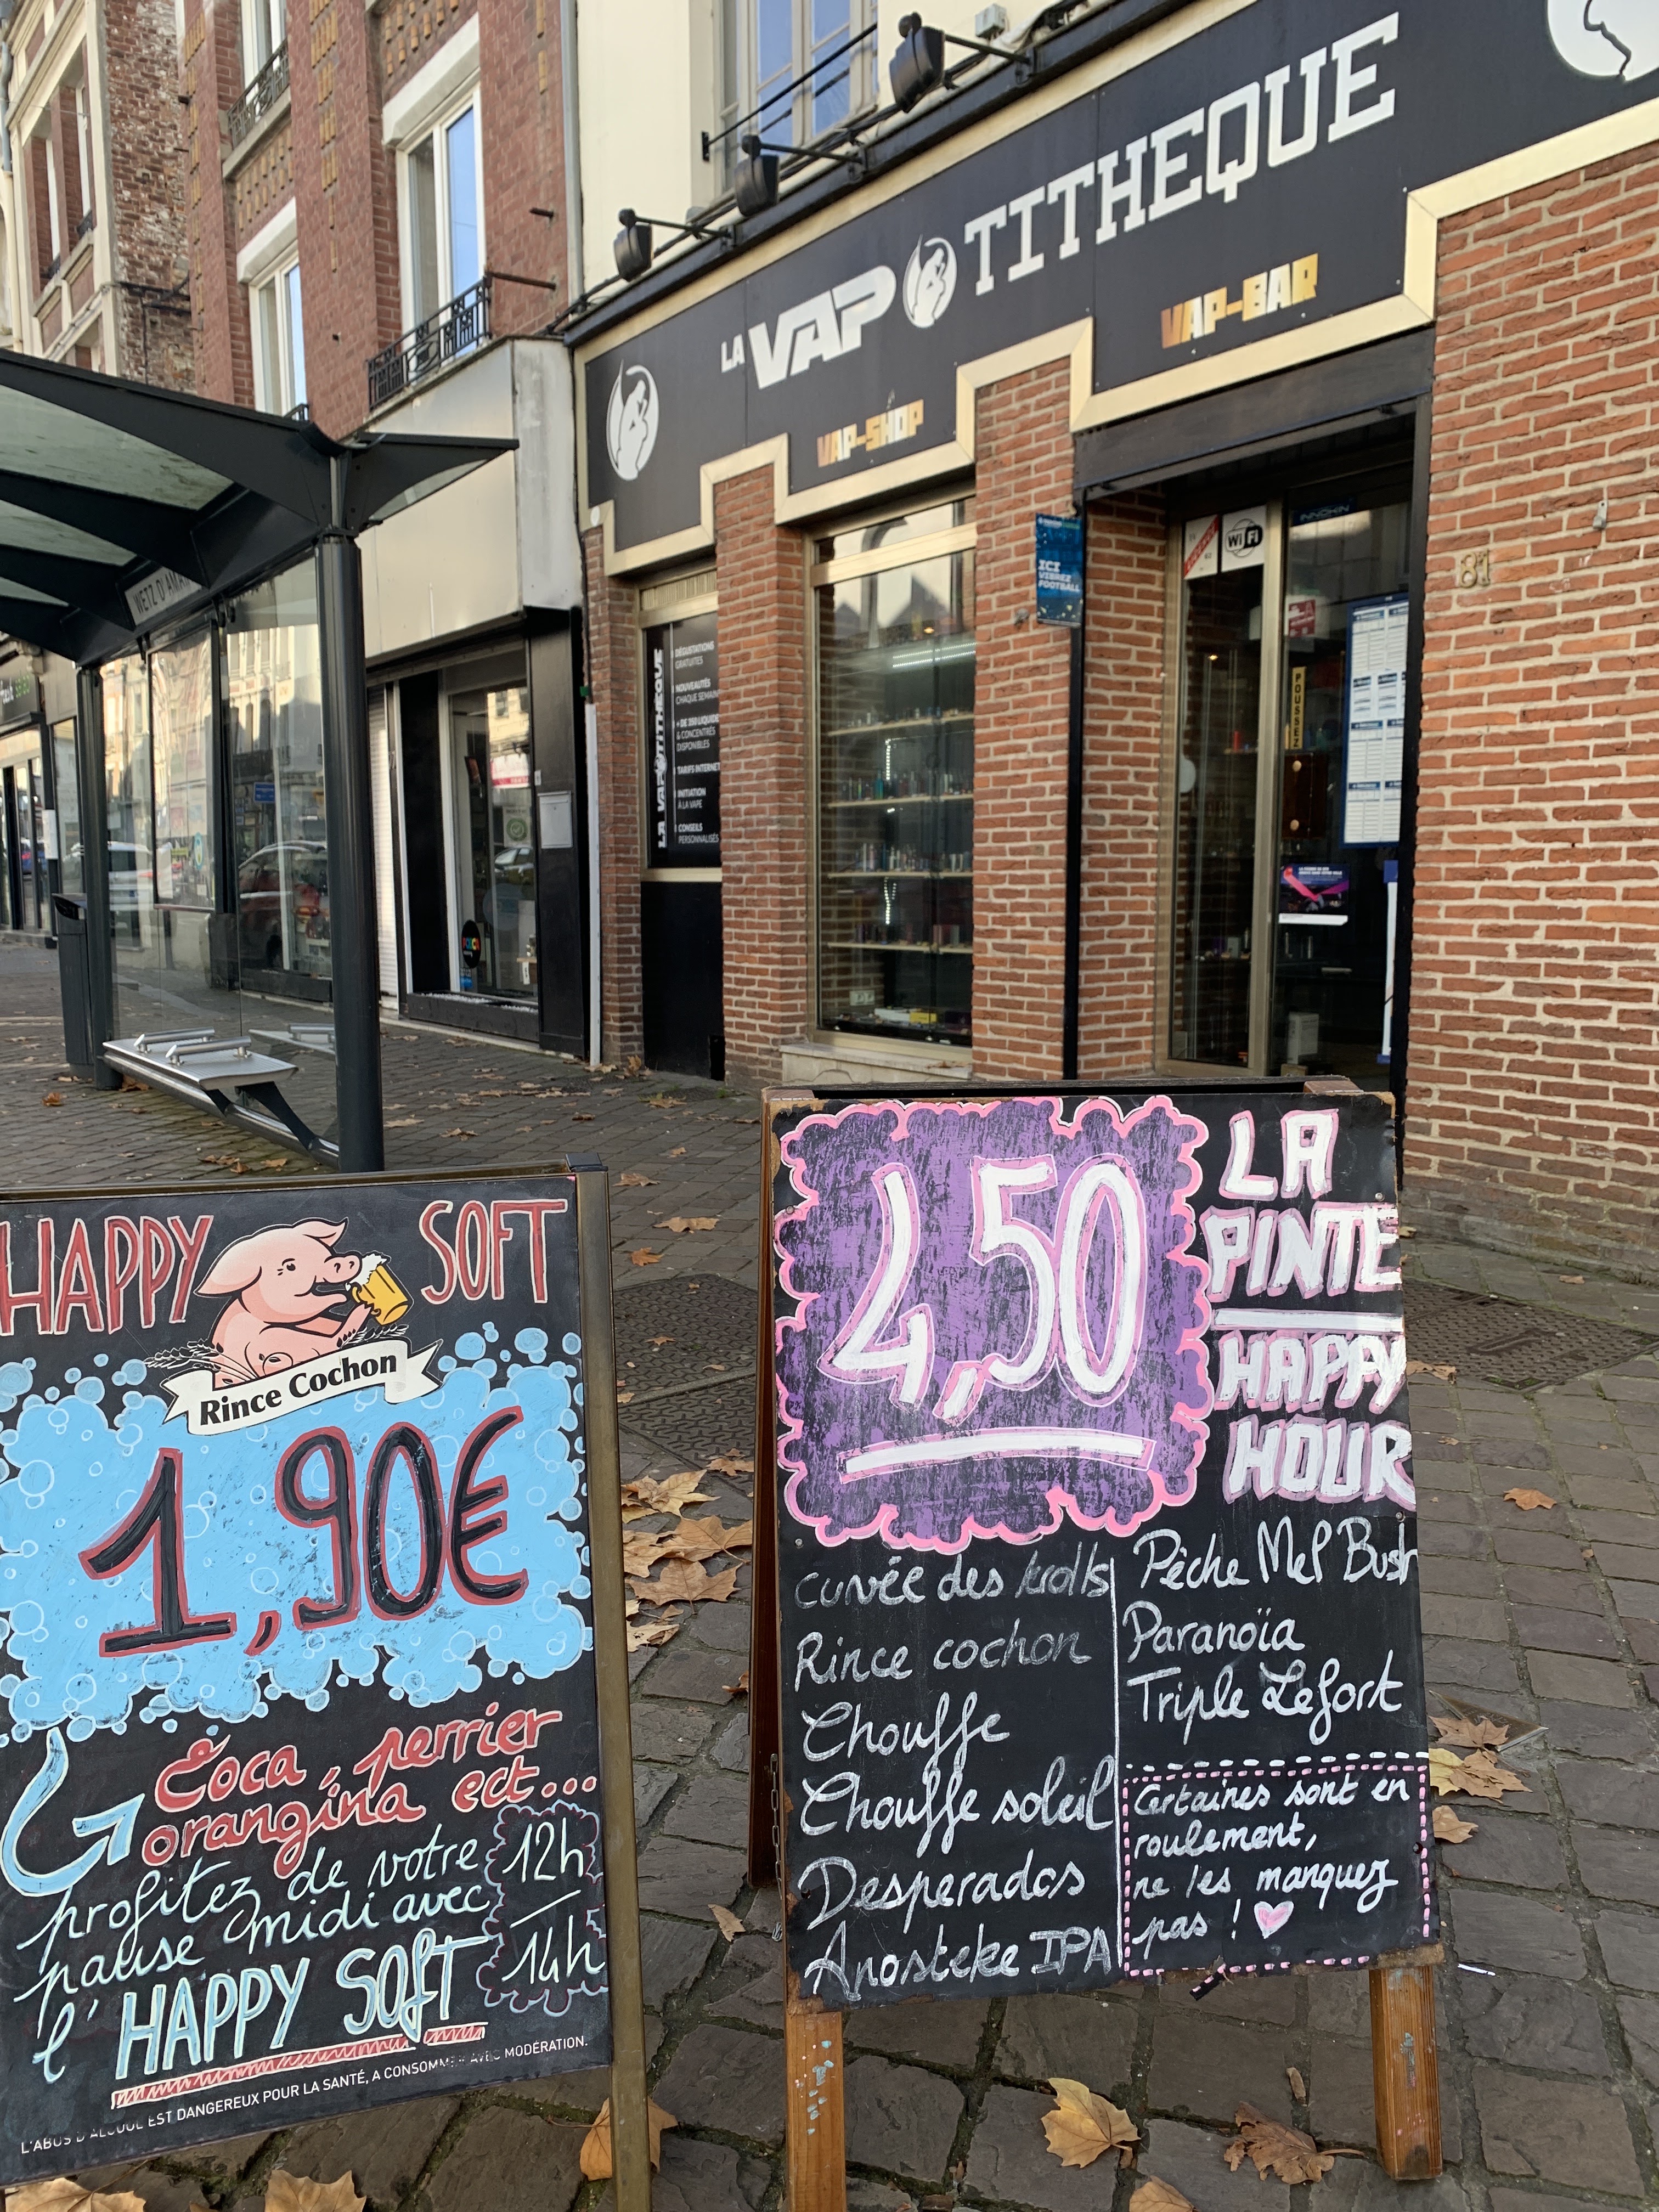 LA VAP TITHEQUE
VAP-SHOP
VAP-BAR
WETZ D'AMAIN
WiFi
INNOKIN
81
ICI
VIBREZ
FOOTBALL
POUSSEZ
LA VAPOTITHEQUE
DÉGUSTATIONS
GRATUITES
NOUVEAUTÉS
CHAQUE SEMAINE
+ DE 250 LIQUIDES
& CONCENTRÉS
DISPONIBLES
TARIFS INTERNET
INITIATION
À LA VAPE
CONSEILS
PERSONNALISÉS
HAPPY SOFT
Rince Cochon
1,90€
Coca, perrier
orangina ect...
profitez de votre
pause midi avec
l'HAPPY SOfT
12h
14h
L'ABUS D'ALCOOL EST DANGEREUX POUR LA SANTÉ, A CONSOMMER AVEC MODÉRATION.
4,50
LA
PINTE
HAPPY
HOUR
cuvée des trolls
Rince cochon
Chouffe
Chouffe soleil
Desperados
Anosteke IPA
Pêche Mel Bush
Paranoïa
Triple Lefort
Certaines sont en
roulement,
ne les manquez
pas ! ♥